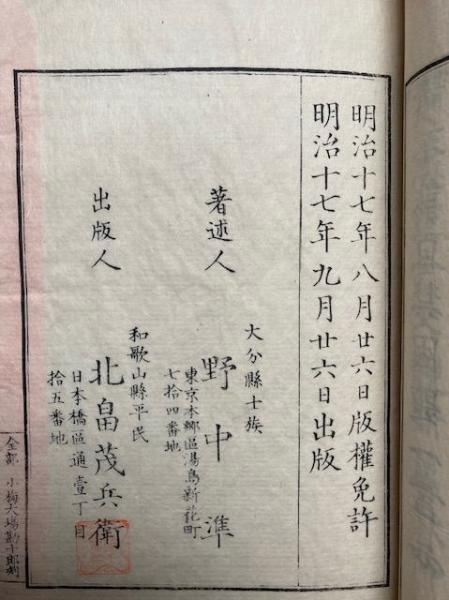 明治十七年八月廿六日版權免許
明治十七年九月廿六日出版
著述人
大分縣士族
野中準
東京本郷區湯島新花町
七拾四番地
出版人
和歌山縣平民
北畠茂兵衛
日本橋區通壹丁目
拾五番地
全部 小梅大場勘十郎刻